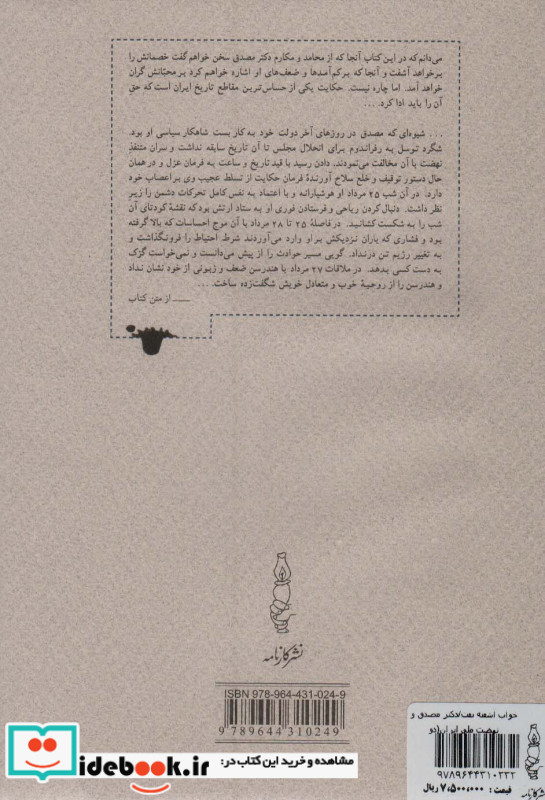 می‌دانم که در این کتاب آنجا که از محامد و مکارم دکتر مصدق سخن خواهم گفت خصمانش را
برخواهد آشفت و آنجا که بر کم‌آمدها و ضعف‌های او اشاره خواهم کرد بر محبّانش گران
خواهد آمد. اما چاره نیست. حکایت یکی از حساس‌ترین مقاطع تاریخ ایران است که حقِ
آن را باید ادا کرد. ...
... شیوه‌ای که مصدق در روزهای آخر دولت خود به کار بست شاهکار سیاسی او بود.
شگرد توسل به رفراندوم برای انحلال مجلس تا آن تاریخ سابقه نداشت و سران متنفذ
نهضت با آن مخالفت می‌نمودند. دادن رسید با قید تاریخ و ساعت به فرمان عزل و در همان
حال دستور توقیف و خلع سلاح آورندهٔ فرمان حکایت از تسلط عجیب وی بر اعصاب خود
دارد. در آن شب ۲۵ مرداد او هوشیارانه و با اعتماد به نفس کامل تحرکات دشمن را زیرِ
نظر داشت. دنبال کردن ریاحی و فرستادن فوری او به ستاد ارتش بود که نقشهٔ کودتای آن
شب را به شکست کشانید. در فاصلهٔ ۲۵ تا ۲۸ مرداد با آن موج احساسات که بالا گرفته
بود و فشاری که یاران نزدیکش بر او وارد می‌آوردند شرط احتیاط را فرونگذاشت و
به تغییر رژیم تن درنداد. گویی مسیر حوادث را از پیش می‌دانست و نمی‌خواست گزک
به دست کسی بدهد. در ملاقات ۲۷ مرداد با هندرسن ضعف و زبونی از خود نشان نداد
و هندرسن را از روحیهٔ خوب و متعادل خویش شگفت‌زده ساخت. ...
از متن کتاب
نشر کارنامه
ISBN 978-964-431-024-9
9 789644 310249
خواب آشفته نفت/دکتر مصدق و
نهضت ملی ایران (دو
۹۷۸۹۶۴۴۳۱۰۲۳۲
قیمت: ۷،۵۰۰،۰۰۰ ریال
نشر کارنامه
iidebook.ir
مشاهده و خرید این کتاب در: